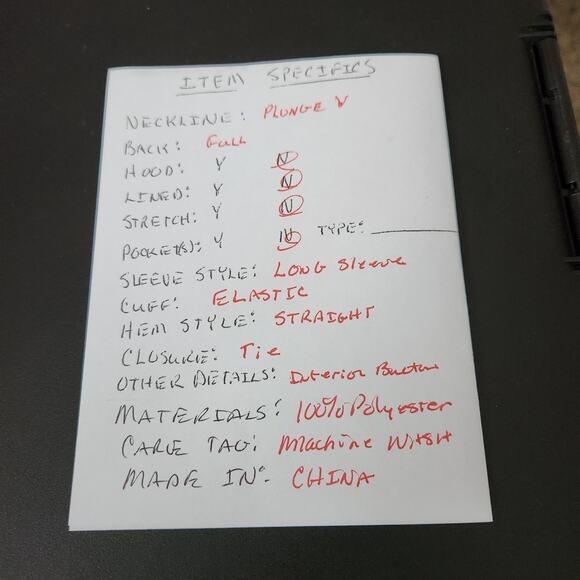 ITEM SPECIFICS
NECKLINE: PLUNGE V
BACK: Full
HOOD: Y N
LINED: Y N
STRETCH: Y N
POCKET(S): Y N TYPE:
SLEEVE STYLE: LONG Sleeve
CUFF: ELASTIC
HEM STYLE: STRAIGHT
CLOSURE: Tie
OTHER DETAILS: Interior Button
MATERIALS: 100% Polyester
CARE TAG: Machine WASH
MADE IN: CHINA